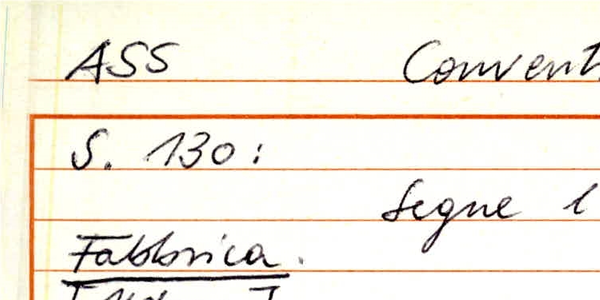 ASS Convent
S. 130:
Segne l
Fabbrica.